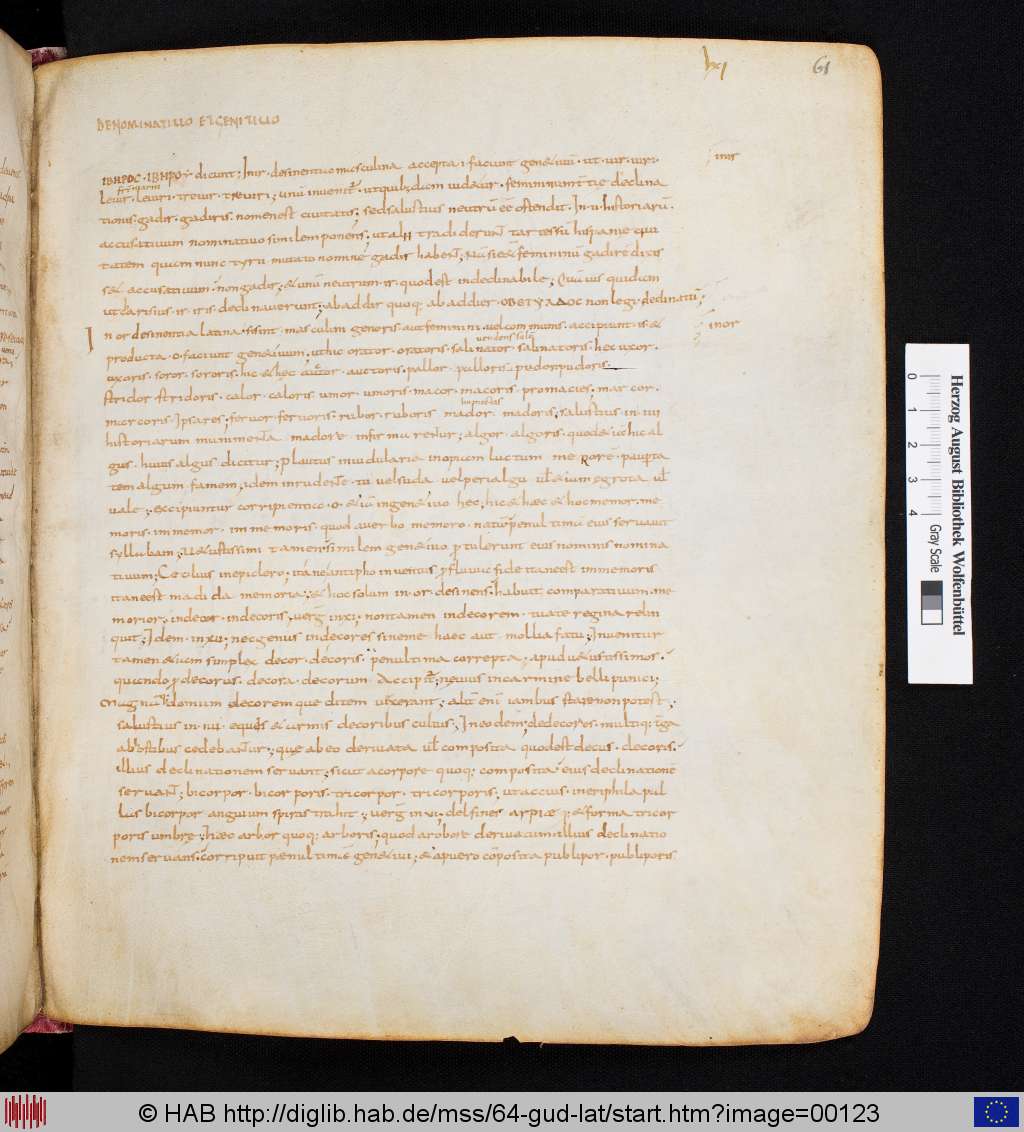 lxi
61
DENOMINATIUO ET GENITIUO
ΙΒΗΡΟC · ΙΒΗΡΟΥ dicunt; In ir desinentia masculina accepta i faciunt genetiuum ut uir uiri
inir
leuir leuiri treuir treuiri; femininum declina
frater mariti
tionis gadir gadiris nomen est ciuitatis; sed salustius neutrum esse ostendit In ii historiarum
accusatiuum nominativo similem ponens; ut alii tradiderunt tartessum hispanie ciui
tatem quam nunc tyrii mutato nomine gadir habent;
sed accusatiuum non gadir; quod est indeclinabile; quidam
ut ir iris declinauerunt; ab addir quoque ab addier non legi declinatum;
In or desinentia latina si sint masculini generis aut feminini uel communis accipiunt is et
inor
producta o faciunt genetiuum ut hic orator oratoris salinator salinatoris hec uxor
uendens sale
uxoris soror sororis hic et hec auctor auctoris pallor palloris pudor pudoris
stridor stridoris calor caloris umor umoris macor macoris pro macies marcor
marcoris feruor feruoris rubor ruboris mador madoris; salustius in iiii
historiarum munimenta madore infirmarentur; algor algoris quod et hic al
gus huius algus dicitur; Plautus in uidularia inopiam luctum merorem pauperta
tem algum famem; idem in rudente tu uel suda uel peri algu uel egrota uel
uale; excipiuntur corripientia o etiam in genetiuo hec hic et haec et hoc memor me
moris inmemor inmemoris quod a uerbo memoro natum penultimam eius seruauit
syllabam; Uetustissimi tamen similem genetiuo protulerunt eius nominis nomina
tiuum; Cecilius in epiclero; itane antipho inuentus profluuia fide itane est immemoris
itane est madida memoria; et hoc solum in or desinens habuit comparatiuum me
morior indecor indecoris uergilius in xi non tamen indecorem tua te regina reli
quit; Idem in xii; nec genus indecores sineme haec aut mollia fatu; Inuenitur
tamen etiam simplex decor decoris penultima correpta apud uetustissimos
quando pro decorus decora decorum Accipitur; neuius in carmine belli punici;
Magnam domum decoremque ditem uexerant; aliter enim iambus stare non potest;
Salustius in iii eques et armis decoribus cultus; In eodem; dedecores multique terga
ab hostibus cedebantur; que ab eo deriuata uel composita quod est decus decoris
illius declinationem seruant; sicut a corpore quoque composita eius declinationem
seruant; bicorpor bicorporis tricorpor tricorporis; ut accius in eriphila pal
las bicorpor anguium spiras trahit; uergilius in ui; et forma tricor
poris umbre; Haec arbor quoque arboris; quod a robore deriuatum illius declinatio
nem seruans corripuit penultimam genetiui; et a puero composita publipor publiporis
0 1 2 3 4
Gray Scale
Herzog August Bibliothek Wolfenbüttel
© HAB http://diglib.hab.de/mss/64-gud-lat/start.htm?image=00123